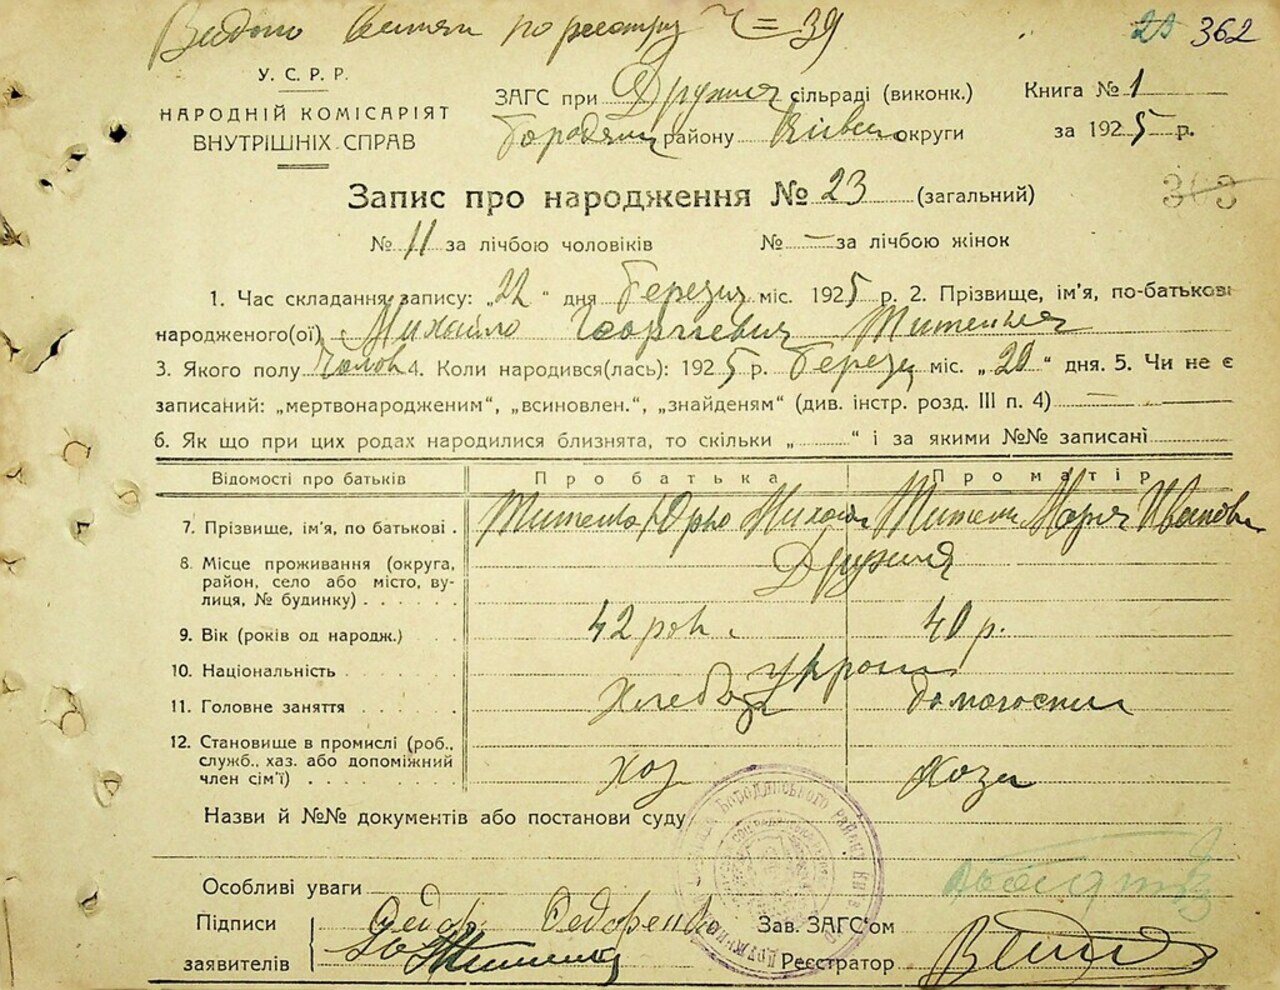 Видано Витяг по реєстру Ч = 39
23 362
У. С. Р. Р.
НАРОДНІЙ КОМІСАРІЯТ
ВНУТРІШНІХ СПРАВ
ЗАГС при Дружня сільраді (виконк.) Книга № 1
Бородян району Київськ округи за 1925 р.
Запис про народження № 23 (загальний)
303
№ 11 за лічбою чоловіків № — за лічбою жінок
1. Час складання запису: „22“ дня Березня міс. 1925 р. 2. Прізвище, ім'я, по-батькові
народженого(ої) Михайло Георгієвич Титенко
3. Якого полу Чолов 4. Коли народився(лась): 1925 р. Березн міс. „20“ дня. 5. Чи не є
записаний: „мертвонародженим“, „всиновлен.“, „знайденям“ (див. інстр. розд. III п. 4) —
6. Як що при цих родах народилися близнята, то скільки „........“ і за якими №№ записані
Відомості про батьків Про батька Про матір
7. Прізвище, ім'я, по батькові . Титенко Юрко Михайл Титенк Марія Івановн
8. Місце проживання (округа, район, село або місто, вулиця, № будинку) . . . . . . Дружня
9. Вік (років од народж.) . . 42 рок. 40 р.
10. Національність . . . . . .
11. Головне заняття . . . . . Хлебор домогоспод
12. Становище в промислі (роб., служб., хаз. або допоміжний член сім'ї) . . . . . . . . Хоз Хозя
Назви й №№ документів або постанови суду
Особливі уваги
Підписи Федор Федоренко Зав. ЗАГС'ом
заявителів Реєстратор
Бородянського району